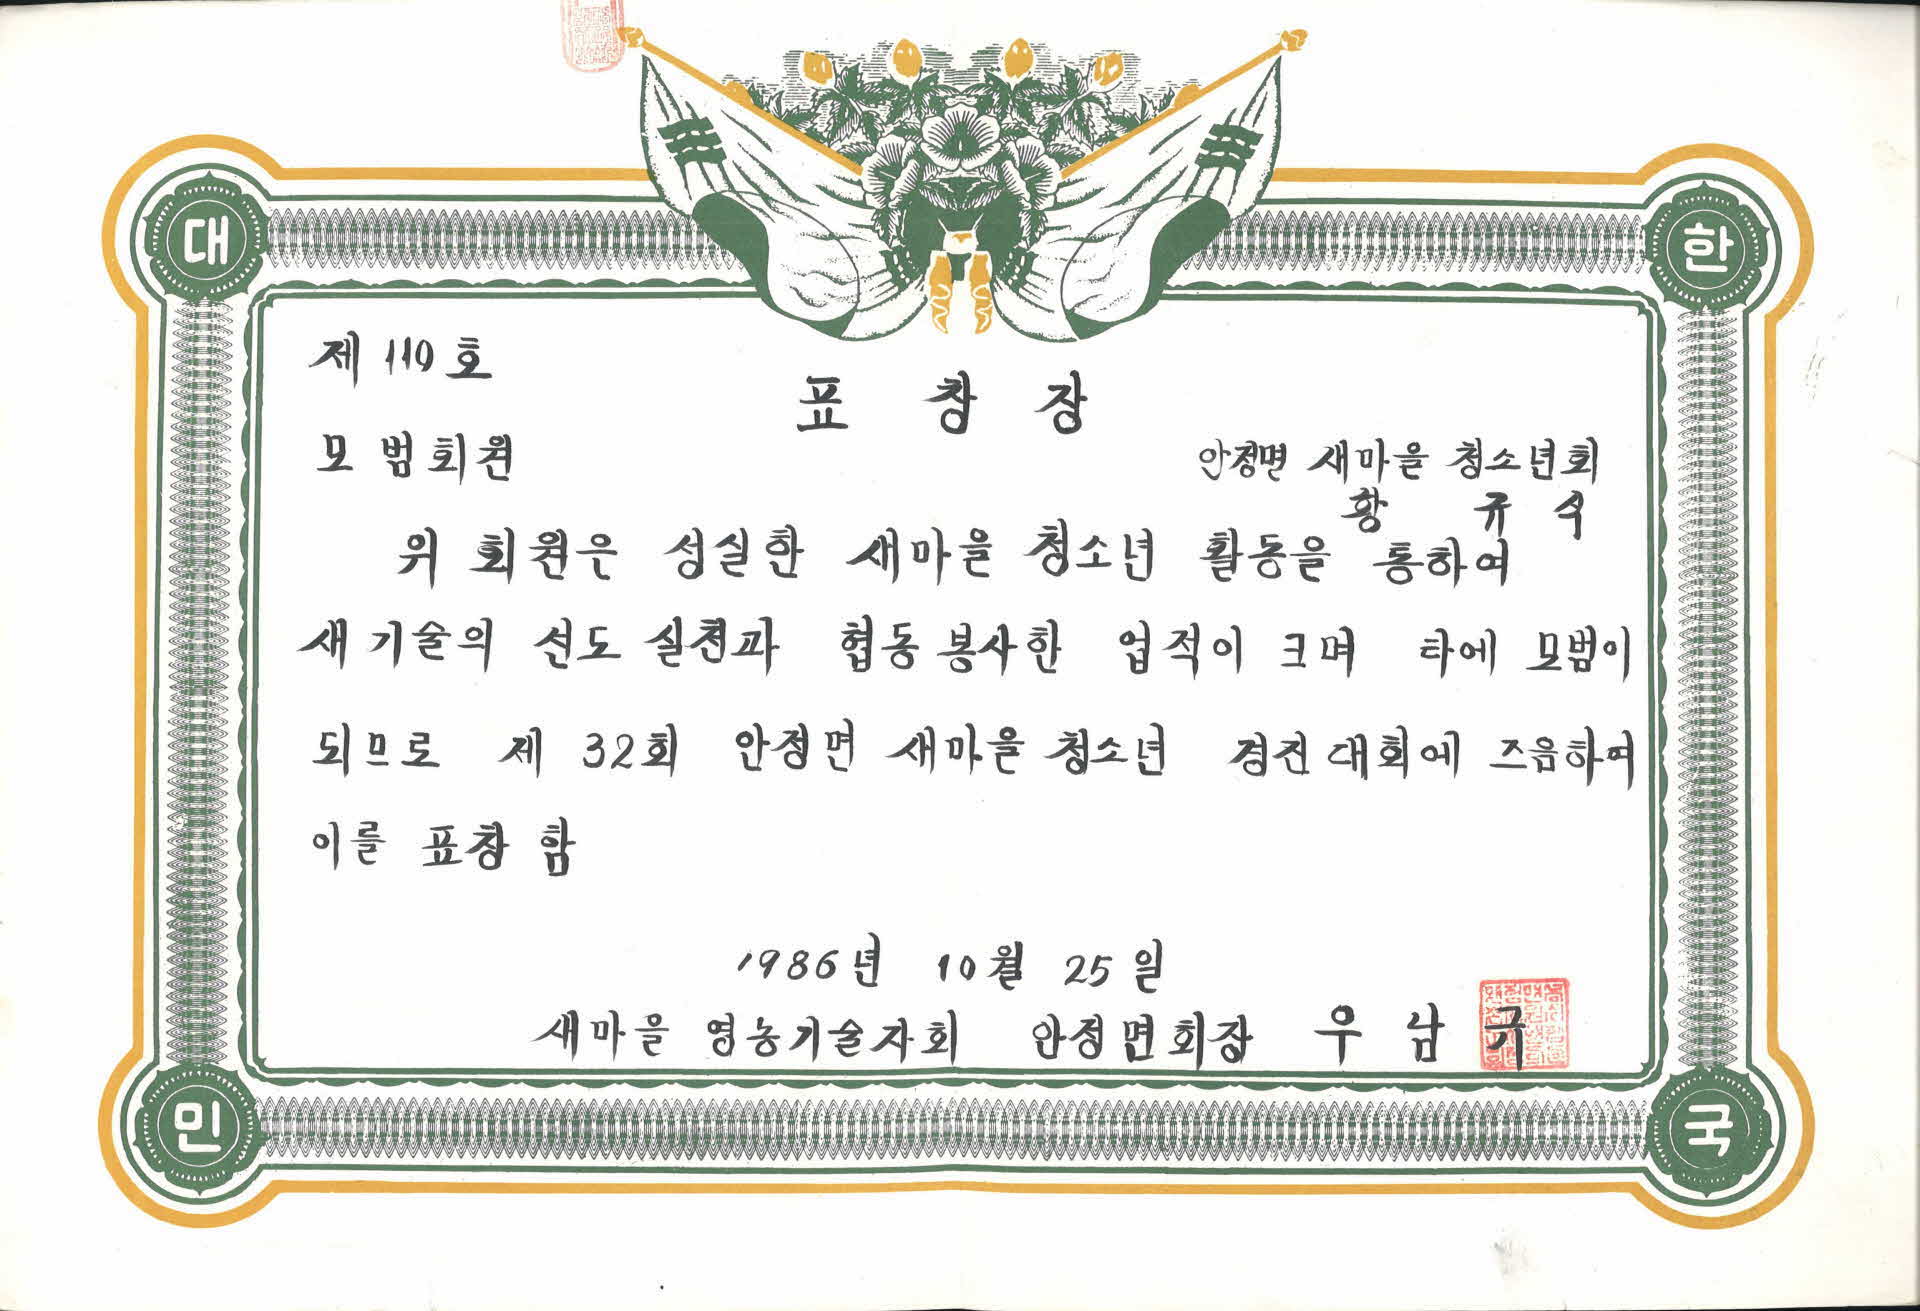 대 한
제 110 호
표 창 장
모범회원
안정면 새마을 청소년회
황 규 식
위 회원은 성실한 새마을 청소년 활동을 통하여
새기술의 선도 실천과 협동봉사한 업적이 크며 타에 모범이
되므로 제 32회 안정면 새마을 청소년 경진대회에 즈음하여
이를 표창 함
1986년 10월 25일
새마을 영농기술자회 안정면회장 우 남 규
민 국